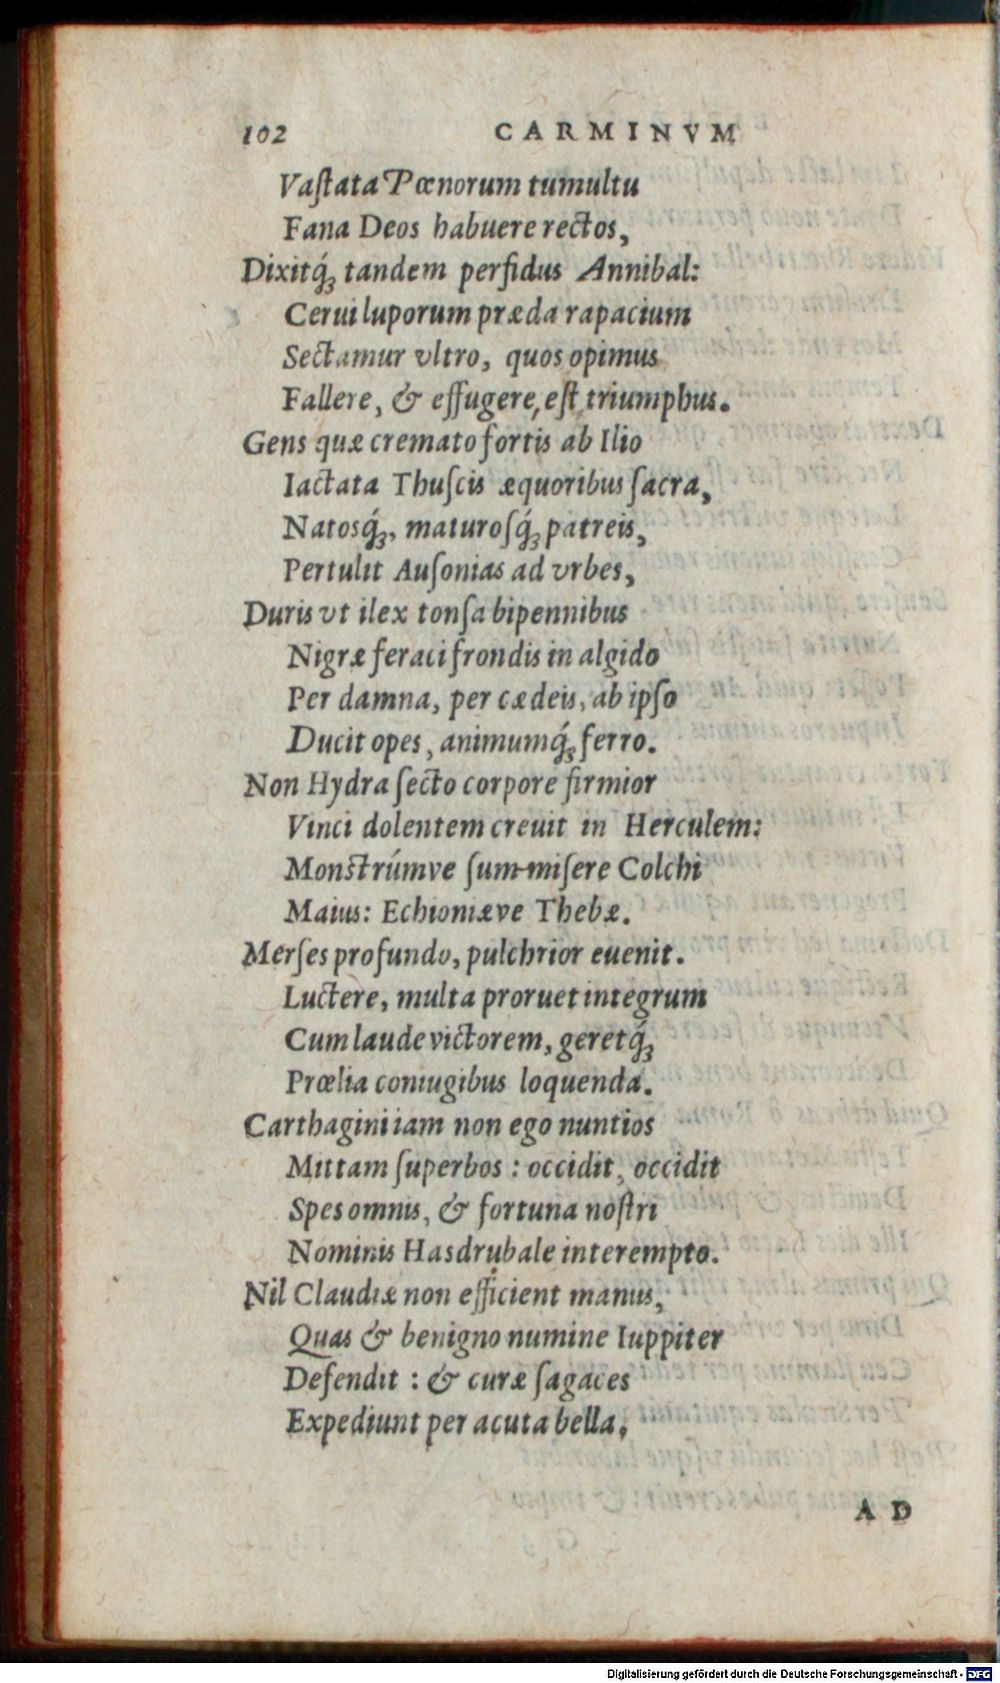 102 CARMINVM
Vaſtata Pœnorum tumultu
Fana Deos habuere rectos,
Dixitq́ꝫ tandem perfidus Annibal:
Cerui luporum præda rapacium
Sectamur vltro, quos opimus
Fallere, & effugere, eſt triumphus.
Gens quæ cremato fortis ab Ilio
Iactata Thuſcis æquoribus ſacra,
Natosq́ꝫ, maturoſq́ꝫ patreis,
Pertulit Auſonias ad vrbes,
Duris vt ilex tonſa bipennibus
Nigræ feraci frondis in algido
Per damna, per cædeis, ab ipſo
Ducit opes, animumq́ꝫ ferro.
Non Hydra ſecto corpore firmior
Vinci dolentem creuit in Herculem:
Monſtrúmve ſummiſere Colchi
Maius: Echioniæve Thebæ.
Merſes profundo, pulchrior euenit.
Luctere, multa proruet integrum
Cum laude victorem, geretq́ꝫ
Prœlia coniugibus loquenda.
Carthagini iam non ego nuntios
Mittam ſuperbos: occidit, occidit
Spes omnis, & fortuna noſtri
Nominis Hasdrubale interempto.
Nil Claudiæ non efficient manus,
Quas & benigno numine Iuppiter
Defendit: & curæ ſagaces
Expediunt per acuta bella,
A D
Digitalisierung gefördert durch die Deutsche Forschungsgemeinschaft - DFG